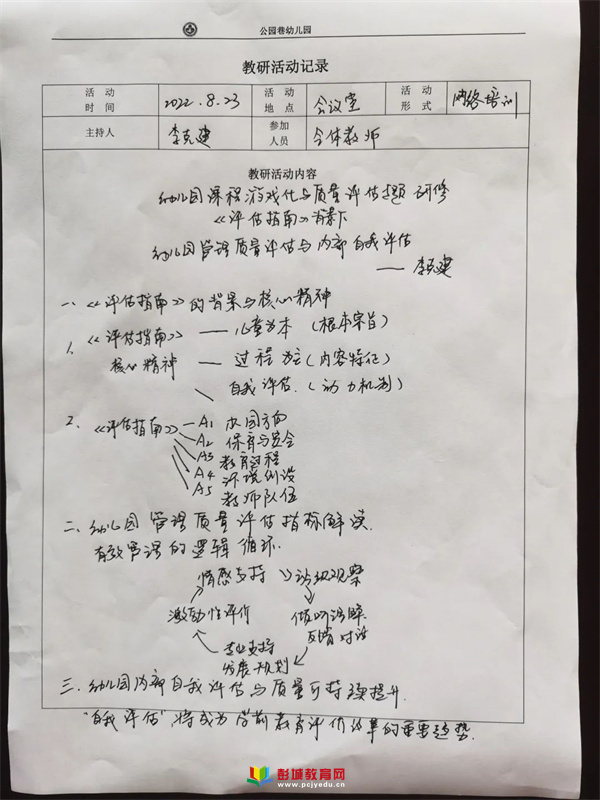 公园巷幼儿园
教研活动记录
活动时间 2022.8.23 活动地点 会议室 活动形式 网络培训
主持人 李克建 参加人员 全体教师
教研活动内容
幼儿园课程游戏化与质量评估专题研修
《评估指南》背景下
幼儿园管理质量评估与内部自我评估
——李克建
一、《评估指南》的背景与核心精神
1、《评估指南》——儿童为本（根本宗旨）
核心精神 —— 过程为主（内容特征）
自我评估.（动力机制）
2、《评估指南》—A1 办园方向
A2 保育与安全
A3 教育过程
A4 环境创设
A5 教师队伍
二、幼儿园管理质量评估指标解读.
有效管理的逻辑循环.
情感支持 活动观察
激励性评价 倾听理解
反省对话
专业支持
发展规划
三、幼儿园内部自我评估与质量可持续提升.
"自我评估"将成为学前教育评价改革的重要趋势.
彭城教育网
www.pcjyedu.cn